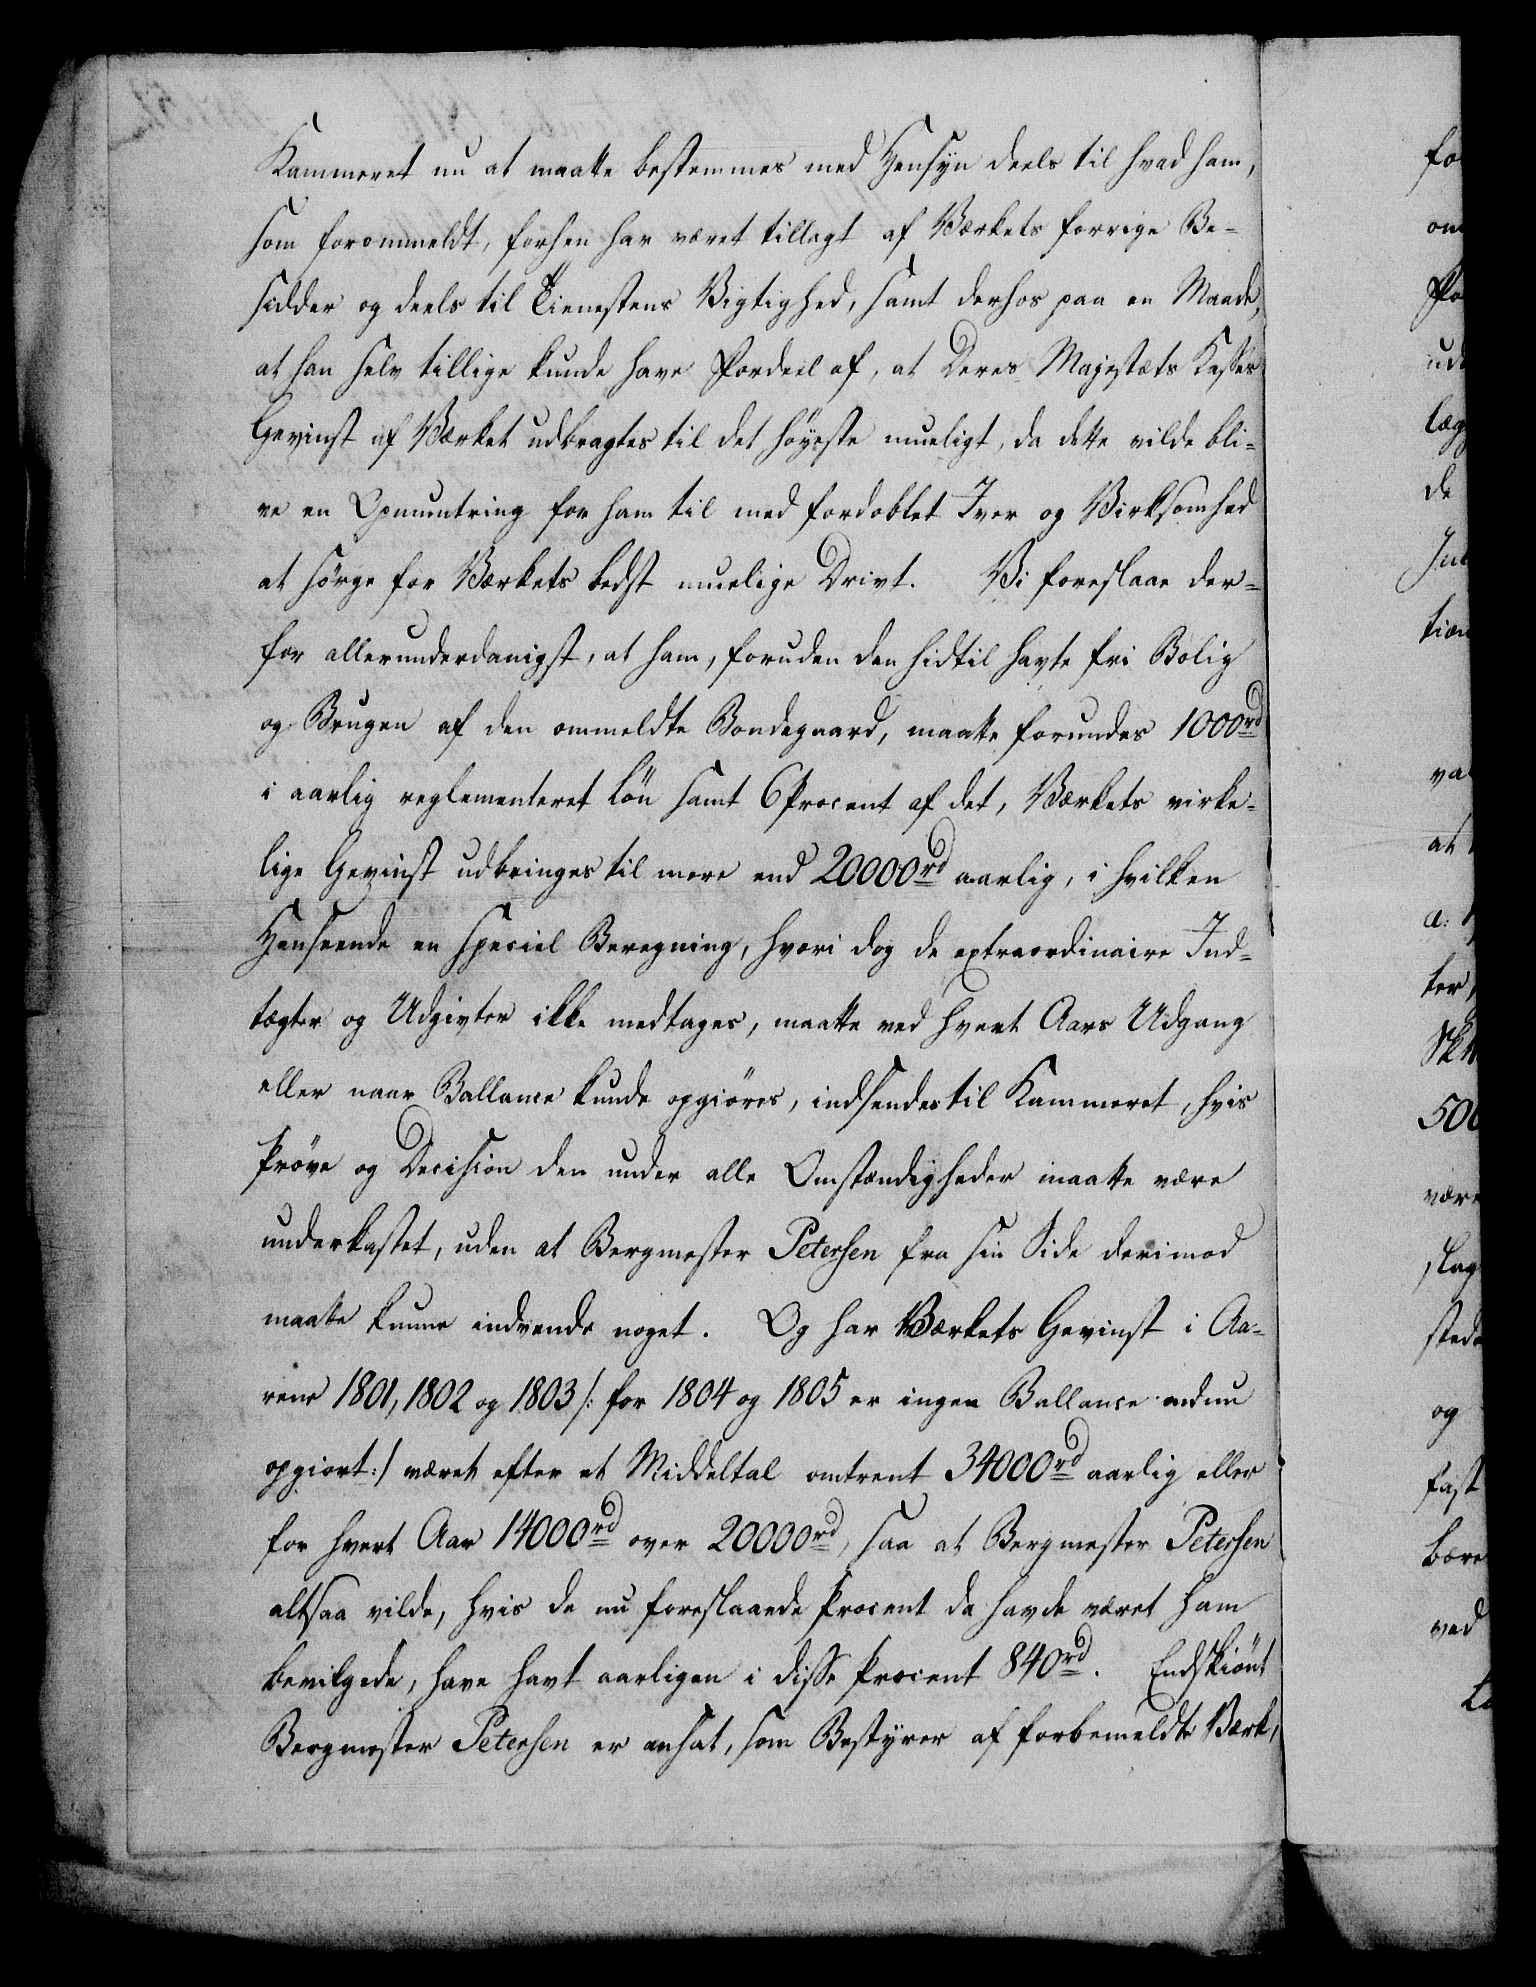 Kammeret nu at maatte bestemmes med Hensyn deels til hvad ham,
som forommeldt, forhen har været tillagt af Værkets forrige Be-
sidder og deels til Tienestens Vigtighed, samt derhos paa en Maade,
at han selv tillige kunde have Fordeel af, at Deres Majestæts Kasses
Gevinst af Værket udbragtes til det høyeste mueligt, da dette vilde bli-
ve en Opmuntring for ham til med fordoblet Iver og Virksomhed
at sörge for Værkets bedst muelige Drivt. Vi foreslaae der-
for allerunderdanigst, at ham, foruden den hidtil havte fri Bolig
og Brugen af den ommeldte Bondegaard, maatte forundes 1000rd
i aarlig reglementeret Lön samt 6 Procent af det, Værkets virke-
lige Gevinst udbringes til mere end 20000rd aarlig, i hvilken
Henseende en speciel Beregning, hvori dog de extraordinaire Ind-
tægter og Udgivter ikke medtages, maatte ved hvert Aars Udgang
eller naar Ballance kunde opgiöres, indsendes til Kammeret, hvis
Pröve og Decision den under alle Omstændigheder maatte være
underkastet, uden at Bergmester Petersen fra sin Side derimod
maatte kunne indvende noget. Og har Værkets Gevinst i Aa-
rene 1801, 1802 og 1803 /: for 1804 og 1805 er ingen Ballance endnu
opgiort :/ været efter et Middeltal omtrent 34000rd aarlig eller
for hvert Aar 14000rd over 20000rd, saa at Bergmester Petersen
altsaa vilde, hvis de nu foreslaaede Procent da havde været ham
bevilgede, have havt aarligen i disse Procent 840rd. Endskiönt
Bergmester Petersen er ansat, som Bestyrer af forbemeldte Værk,